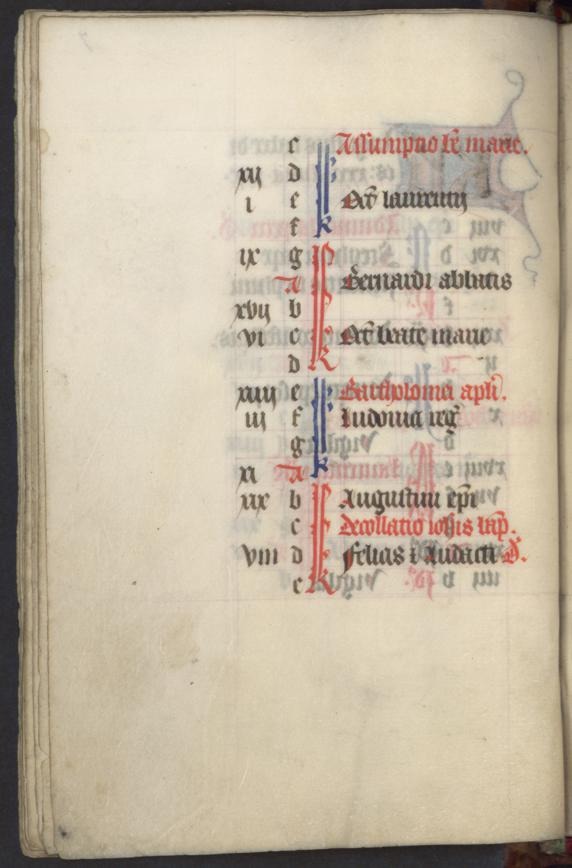 c Assumptio be marie.
xij d
i e Oct laurentij
f k
ix g
A Bernardi abbatis
xvij b
vi c Oct beate marie
d k
xiiij e Bartholomei apli.
iij f ludouici reg
g
xi A k
xix b Augustini epi
c Decollatio iohis bap.
viij d felicis ⁊ Audacti D.
e k